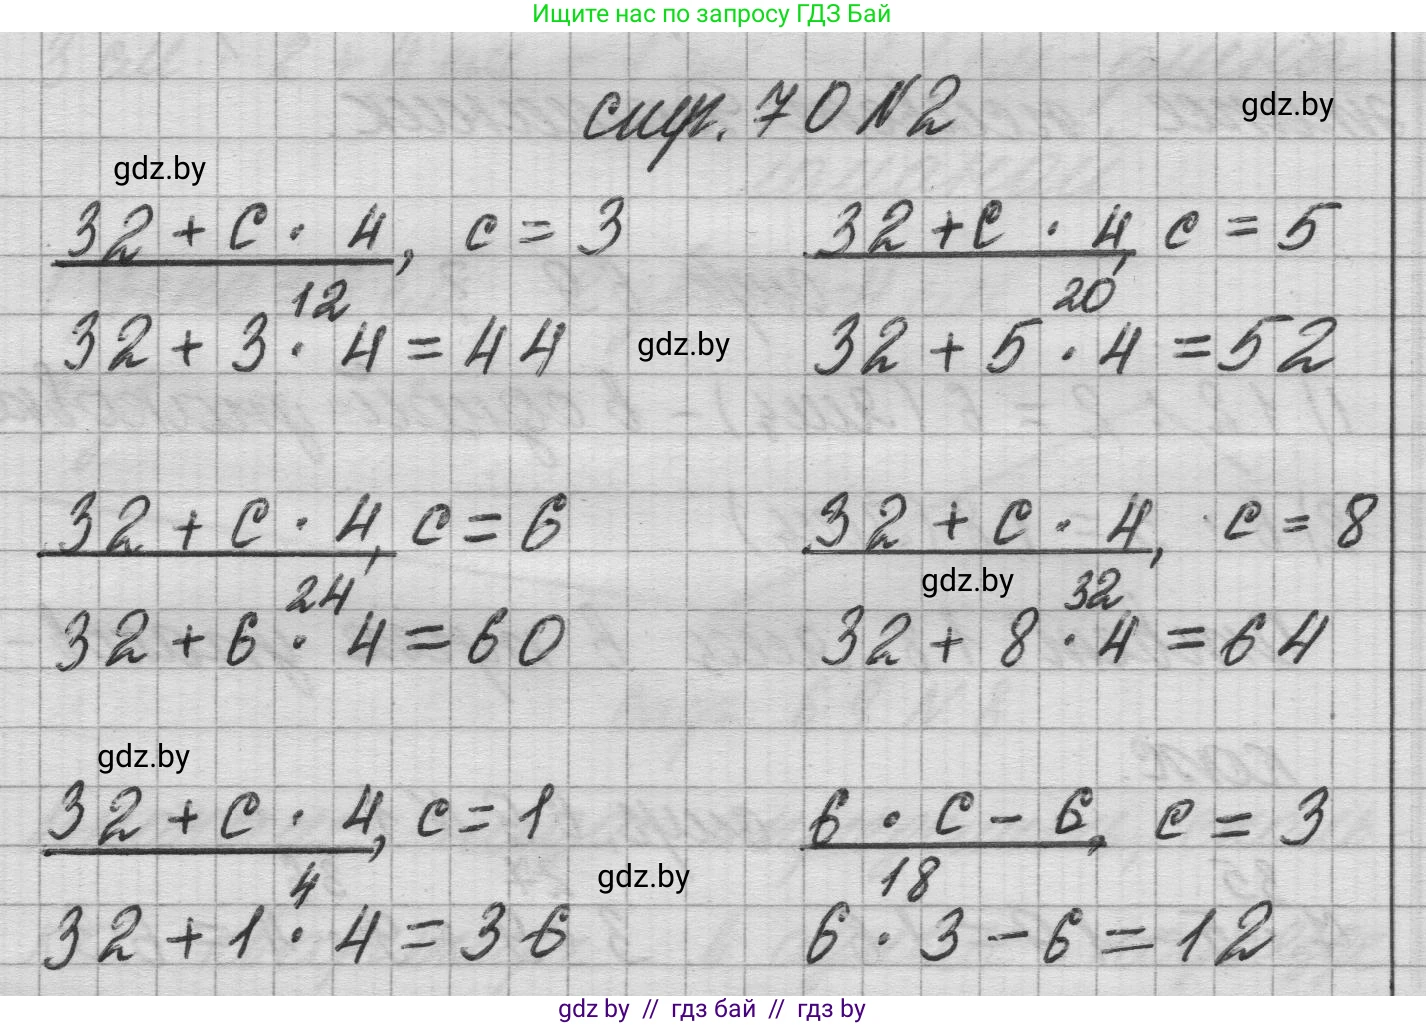 Ищите нас по запросу ГДЗ Бай
стр. 70 №2
gdz.by
gdz.by
32 + c · 4, c = 3
32 + c · 4, c = 5
12
20
32 + 3 · 4 = 44
gdz.by
32 + 5 · 4 = 52
32 + c · 4, c = 6
32 + c · 4, c = 8
gdz.by
24
32
32 + 6 · 4 = 60
32 + 8 · 4 = 64
gdz.by
32 + c · 4, c = 1
6 · c - 6, c = 3
4
gdz.by
18
32 + 1 · 4 = 36
6 · 3 - 6 = 12
gdz by // гдз бай // гдз by